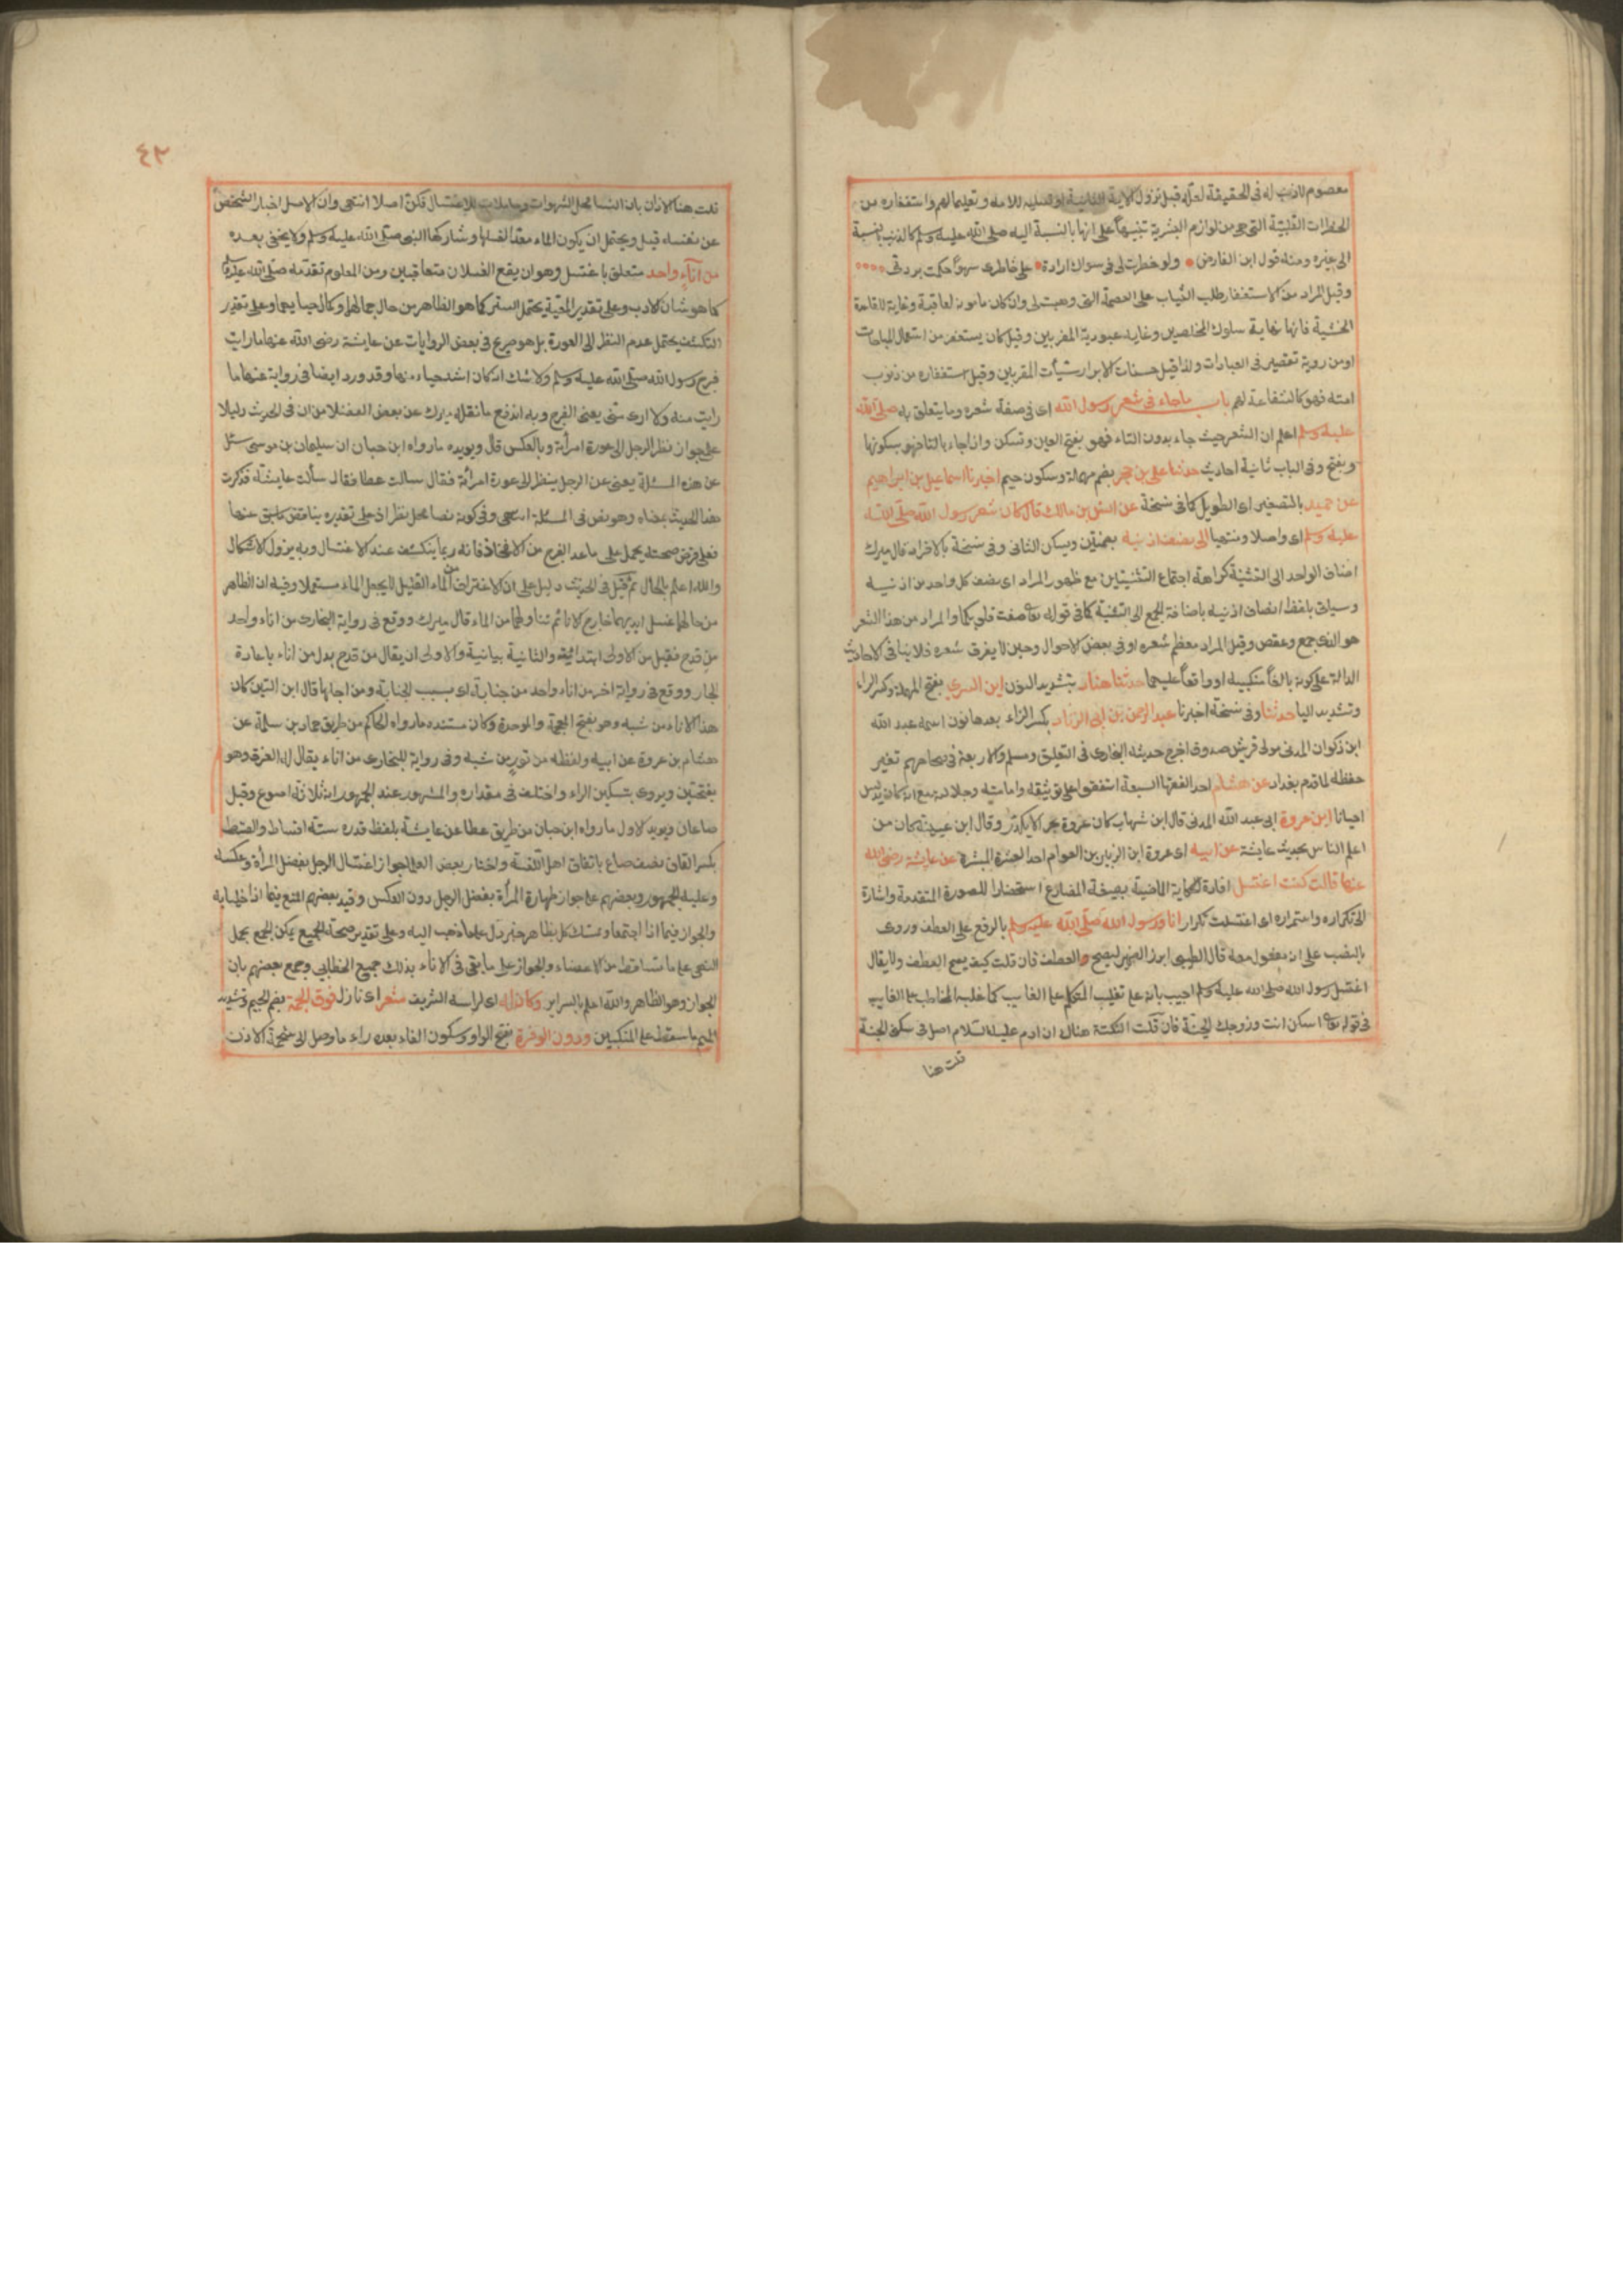 معصوم لاذنب له فى الحقيقة لعله قبل نزول الاية الثانية او تسلية للامة وتعليما لهم واستغفاره من
الخطرات القلبية التى هى من لوازم البشرية تنبيهاً على انها بالنسبة اليه صلى الله عليه وسلم كالذنب بالنسبة
الى غيره ومنه قول ابن الفارض ولو خطرت لى فى سواك ارادة على خاطرى سهواً حكمت بردتى
وقيل المراد من الاستغفار طلب الثبات على العصمة التى وهبت له وان كان مامون العاقبة وغاية للقاعدة
الخشية فانها نهاية سلوك المخلصين وغاية عبودية المقربين وقيل كان يستغفر من استعمال المباحات
او من روية تقصير فى العبادات ولذا قيل حسنات الابرار سيئات المقربين وقيل استغفاره من ذنوب
امته فهو كالشفاعة لهم باب ماجاء فى شعر رسول الله اى فى صفة شعره وما يتعلق به صلى الله
عليه وسلم اعلم ان الشعر حيث جاء بدون التاء فهو بفتح العين وتسكن واذا جاء بالتا فهو بسكونها
وبفتح وفى الباب ثمانية احاديث حدثنا على بن حجر بضم مهملة وسكون جيم اخبرنا اسماعيل بن ابراهيم
عن حميد بالتصغير اى الطويل كما فى نسخة عن انس بن مالك قال كان شعر رسول الله صلى الله
عليه وسلم اى واصلا ومنتهيا الى نصف اذنيه بضمتين ويسكن الثانى وفى نسخة بالافراد قال ميرك
اضاف الواحد الى التثنية كراهة اجتماع التثنيتين مع ظهور المراد اى نصف كل واحد من اذنيه
وسياتى بلفظ انصاف اذنيه باضافة الجمع الى التثنية كما فى قوله تعالى صغت قلوبكما والمراد من هذا الشعر
هو الذى جمع وعقص وقيل المراد معظم شعره او فى بعض الاحوال وحين لا يفرق شعره فلا ينافى الاحاديث
الدالة على كونه بالغاً منكبيه او واقعاً عليهما حدثنا هناد بتشديد النون ابن السرى بفتح المهملة وكسر الراء
وتشديد اليا حدثنا وفى نسخة اخبرنا عبد الرحمن بن ابى الزناد بكسر الزاء بعدها نون اسمه عبد الله
ابن ذكوان المدنى مولى قريش صدوق اخرج حديثه البخارى فى التعليق ومسلم والاربعة فى صحاحهم تغير
حفظه لما قدم بغداد عن هشام احد الفقها السبعة اتفقوا على توثيقه وامامته وجلالته مع انه كان يدلس
احيانا ابن عروة ابى عبد الله المدنى قال ابن شهاب كان عروة بحر الا يكدر وقال ابن عيينة كان من
اعلم الناس بحديث عايشة عن ابيه اى عروة ابن الزبير بن العوام احد العشرة المبشرة عن عايشة رضى الله
عنها قالت كنت اغتسل افادة لحكاية الماضية بصيغة المضارع استحضارا للصورة المتقدمة واشارة
الى تكراره واستمراره اى اغتسلت تكرارا انا ورسول الله صلى الله عليه وسلم بالرفع على العطف وروى
بالنصب على انه مفعول معه قال الطيبى ابرز الضمير ليصح والعطف فان قلت كيف يصح العطف ولا يقال
اغتسل رسول الله صلى الله عليه وسلم اجيب بانه على تغليب المتكلم على الغايب كما غلب المخاطب على الغايب
فى قوله تعالى اسكن انت وزوجك الجنة فان قلت النكتة هناك ان ادم عليه السلام اصل فى سكنى الجنة
قلت هنا
٤٢
قلت هنا الايذان بان النسا محل الشهوات وحاملات للاغتسال فكن اصلا انتهى وان الاصل اخبار الشخص
عن نفسه قيل ويحتمل ان يكون الماء معدا لغسلها وشاركها النبى صلى الله عليه وسلم ولا يخفى بعده
من اناء واحد متعلق باغتسل وهو ان يقع الغسلان متعاقبين ومن المعلوم تقدمه صلى الله عليه وسلم
كما هو شان الادب وعلى تقدير المعية يحتمل الستر كما هو الظاهر من حال جمالهما وكمال حيايهما وعلى تقدير
التكشف يحتمل عدم النظر الى العورة بل هو صريح فى بعض الروايات عن عايشة رضى الله عنها ما رايت
فرج رسول الله صلى الله عليه وسلم ولا شك انه كان اشد حياء منها وقد ورد ايضا فى رواية عنها ما
رايت منه ولا ارى منى يعنى الفرج وبه اندفع ما نقله ميرك عن بعض الفضلا من ان فى الحديث دليلا
على جواز نظر الرجل الى عورة امرأته وبالعكس قال ويويده ما رواه ابن حبان ان سليمان بن موسى سئل
عن هذه المسئلة يعنى عن الرجل ينظر الى عورة امرأته فقال سالت عطا فقال سألت عايشة فذكرت
هذا الحديث بمعناه وهو نص فى المسئلة انتهى وفى كونه نصا محل نظر اذ على تقديره يناقض ما سبق عنها
فعلى فرض صحته يحمل على ما عدا الفرج من الافخاذ فانه ربما ينكشف عند الاغتسال وبه يزول الاشكال
والله اعلم بالحال ثم قيل فى الحديث دليل على ان الاغتراف من الماء القليل لا يجعل الماء مستعملا وفيه ان الظاهر
من حالهما غسل ايديهما خارج الانا ثم تناولهما من الماء قال ميرك ووقع فى رواية البخارى من اناء واحد
من قدح فقيل من الاولى ابتدائية والثانية بيانية والاولى ان يقال من قدح بدل من اناء باعادة
الجار ووقع فى رواية اخرى من اناء واحد من جنابة اى بسبب الجنابة ومن اجلها قال ابن التين كان
هذا الاناء من شبه وهو بفتح المعجمة والموحدة وكان مستنده ما رواه الحاكم من طريق حماد بن سلمة عن
هشام بن عروة عن ابيه ولفظه من تور من شبه وفى رواية للبخارى من اناء يقال له الفرق وهو
بفتحتين ويروى بتسكين الراء واختلف فى مقداره والمشهور عند الجمهور انه ثلاثة اصوع وقيل
صاعان ويويد الاول ما رواه ابن حبان من طريق عطا عن عايشة بلفظ قدره ستة اقساط والقسط
بكسر القاف نصف صاع باتفاق اهل اللغة واختار بعض العلما جواز اغتسال الرجل بفضل المرأة وعكسه
وعليه الجمهور وبعضهم على جواز طهارة المرأة بفضل الرجل دون العكس وقيد بعضهم المنع فيما اذا خليا به
والجواز فيما اذا اجتمعا وتمسك كل بظاهر خبر دل على ما ذهب اليه وعلى تقدير صحة الجميع يمكن الجمع بحمل
النهى على ما تساقط من الاعضاء والجواز على ما بقى فى الاناء بذلك جمع الخطابى وجمع بعضهم بان
الجواز وهو الظاهر والله اعلم بالسراير وكان له اى لراسه الشريف شعر اى نازل فوق الجمة بضم الجيم وتشديد
الميم ما سقط على المنكبين ودون الوفرة بفتح الواو وسكون الفاء بعده راء ما وصل الى شحمة الاذن